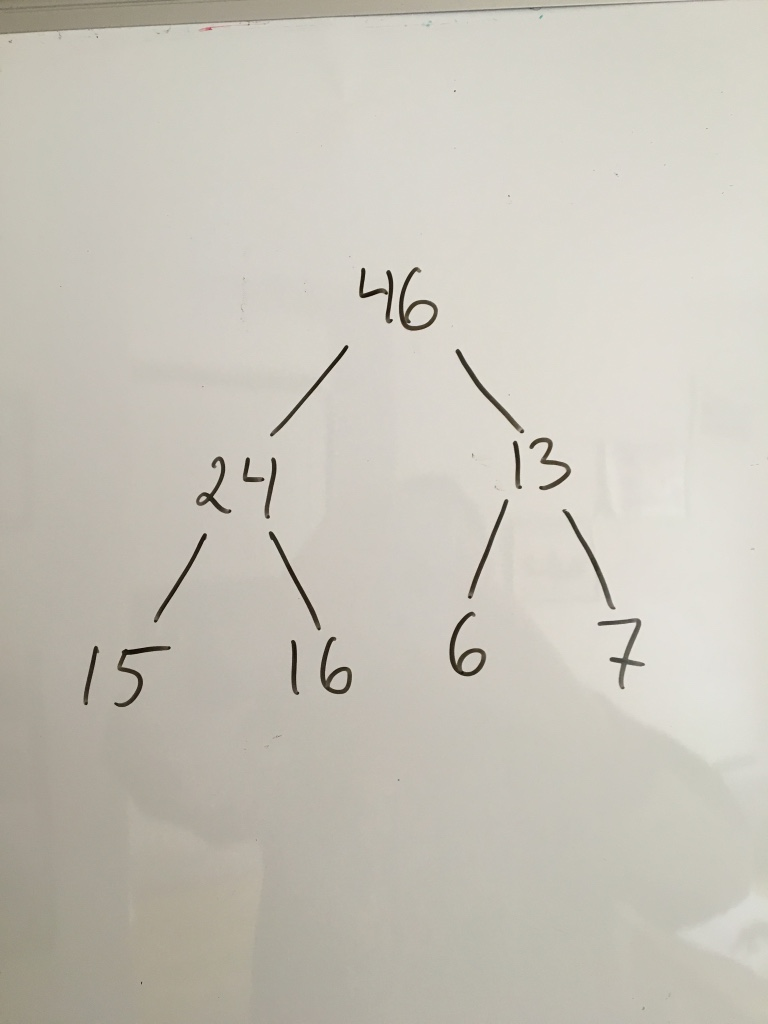 46
24 13
15 16 6 7